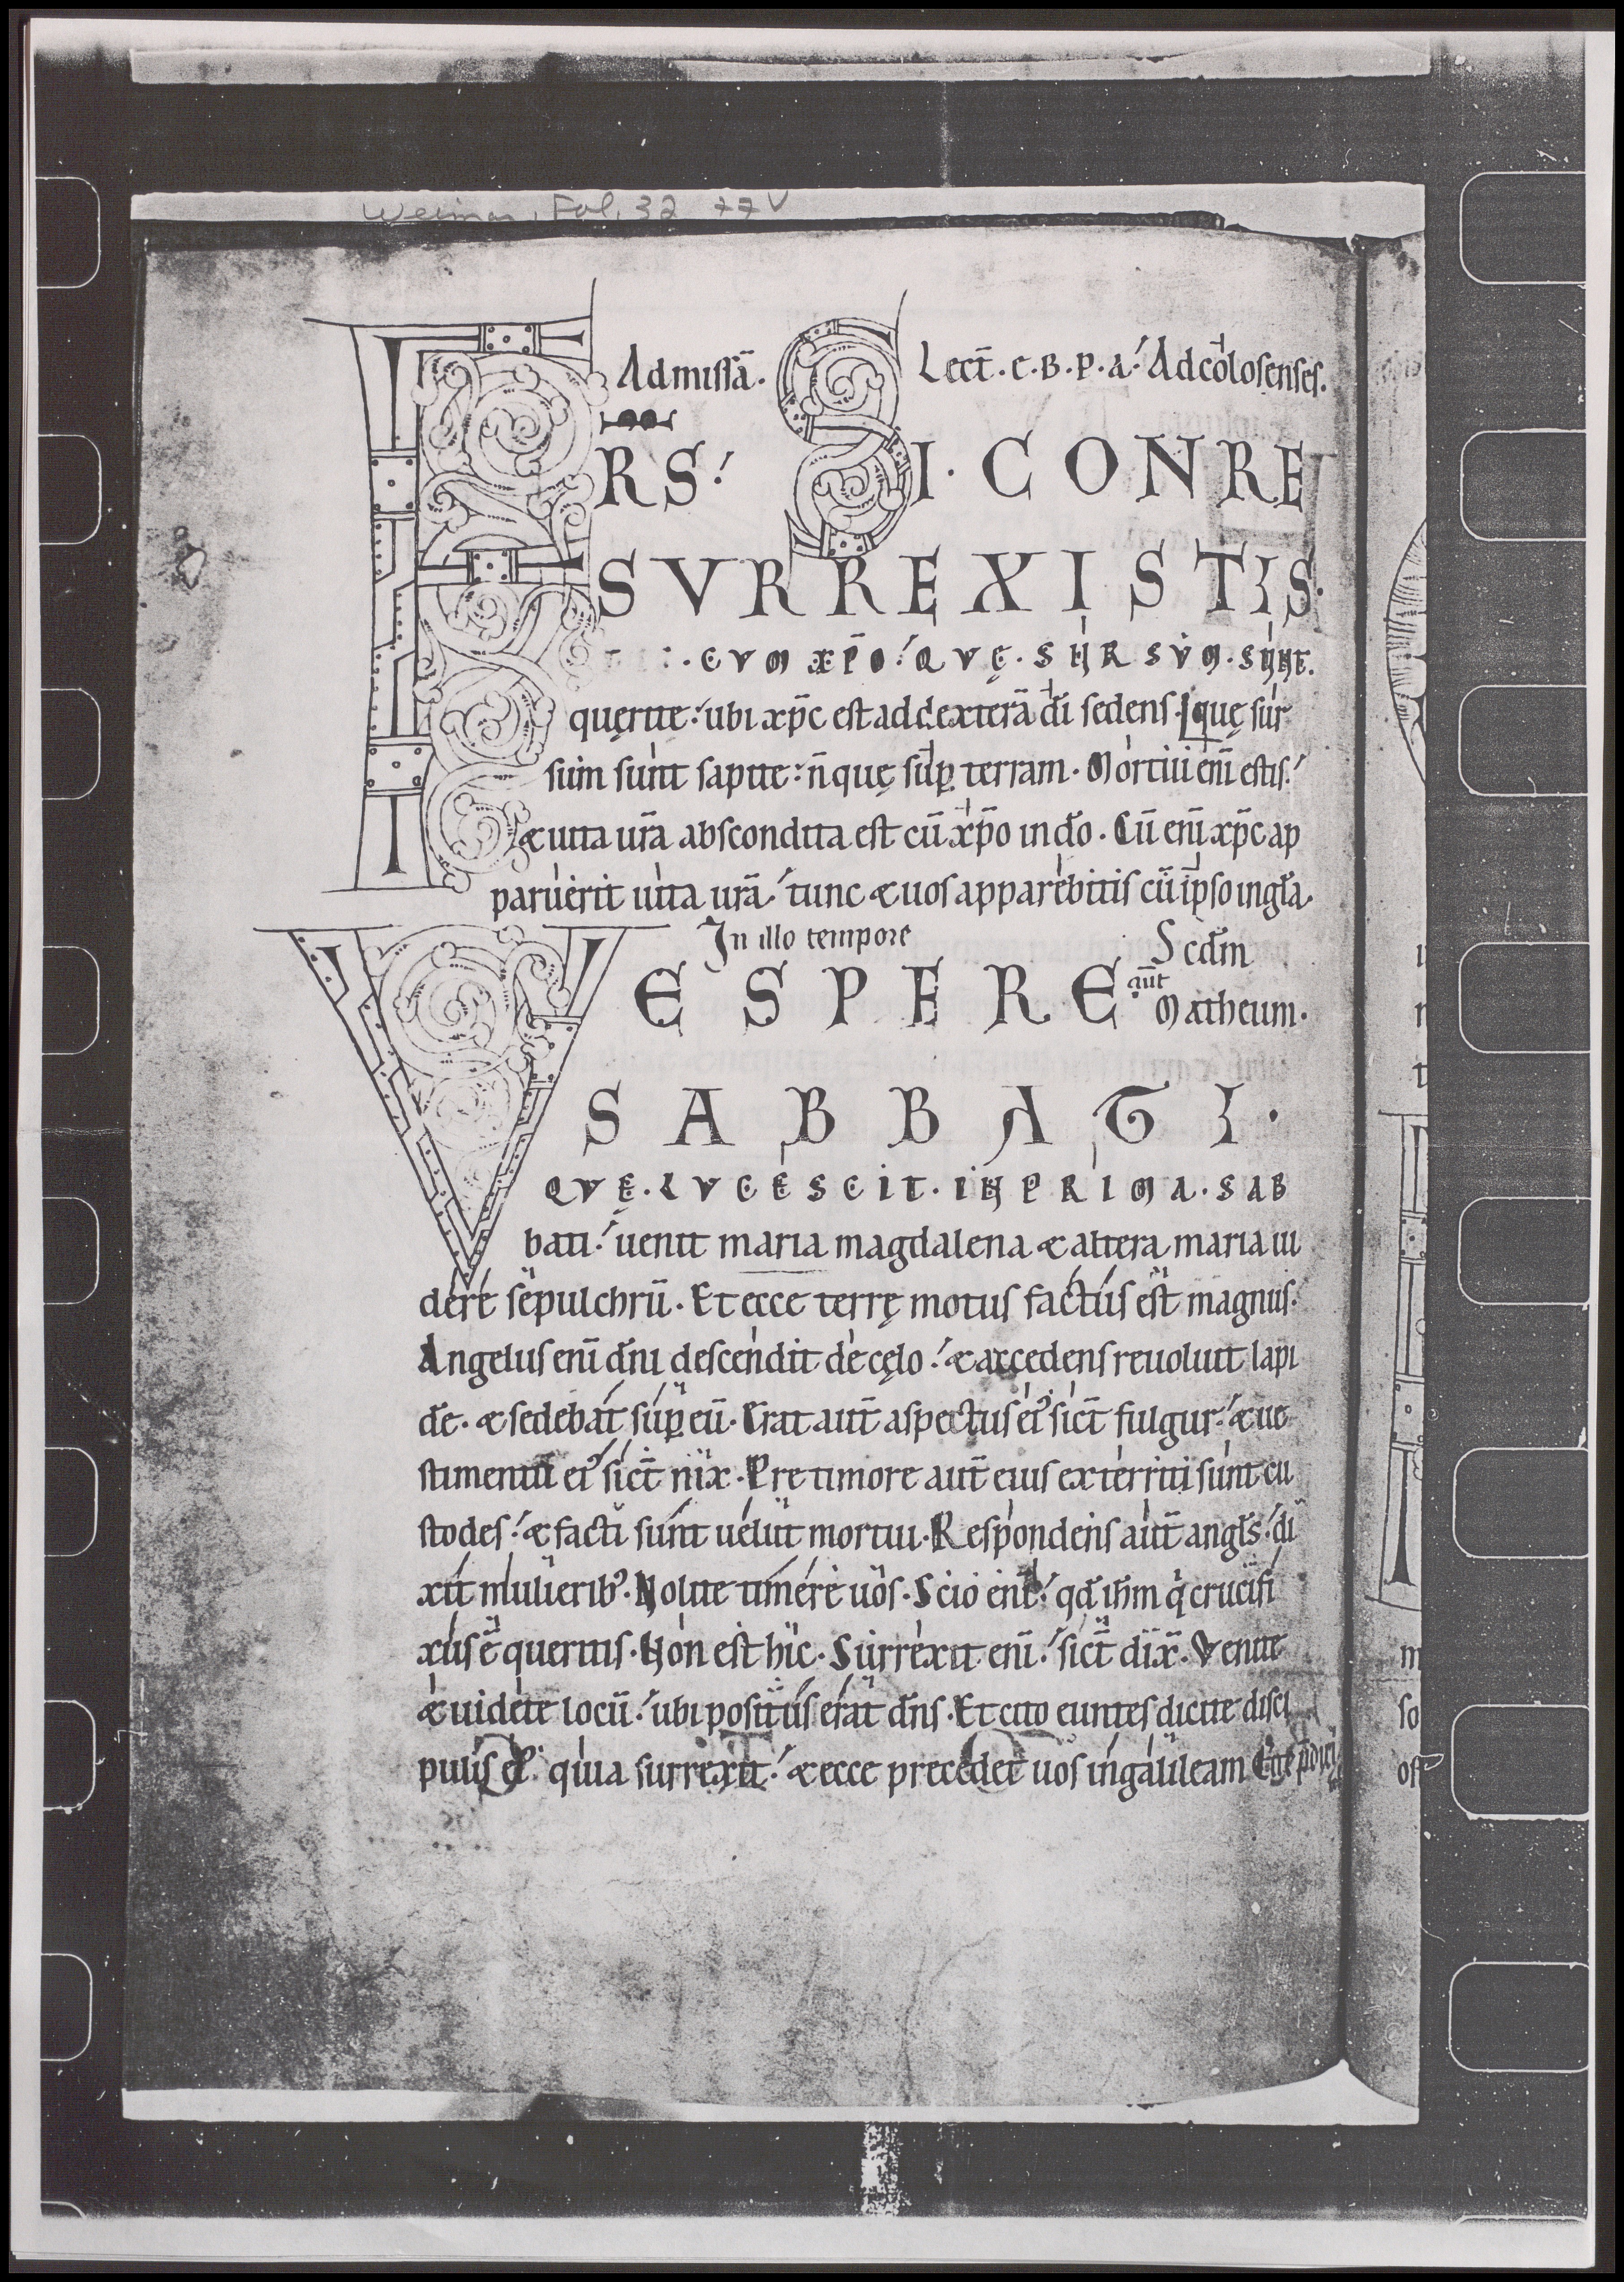 Weimar, Fol. 32 77v
Admissā. Lect̄. e. B. P. a. Adcolosenses.
FRS. SI. CONRE
SVRREXISTIS.
CVM XP̄O. QVĘ. SURSVM. SUNT.
quęrite. ubi xp̄c est addexterā dī sedens. quę sur
sum sunt sapite. n̄ quę sup̱ terram. Mortui enī estis.
& uita ur̄a abscondita est cū xp̄o in do. Cū enī xp̄c ap
paruerit uita ur̄a. tunc & uos apparebitis cū ip̄so ingl̄a.
In illo tempore Scd̄m
VESPERE aūt Matheum.
SABBATI.
QVE. LVCESCIT. IN PRIMA. SAB
bati. uenit maria magdalena & altera maria ui
dere sepulchrū. Et ecce terrę motus factus est magnus.
Angelus enī dn̄i descendit de cęlo. & accedens reuoluit lapi
dē. & sedebat sup̱ eū. Erat aut̄ aspectus ei᾽ sict̄ fulgur. & ue
stimentū ei᾽ sict̄ nix. Pre timore aut̄ eius exterriti sunt cu
stodes. & facti sunt uelut mortui. Respondens aut̄ angl̄s. di
xit mulierib᾽. Nolite timere uos. Scio enī. qd̄ ih̄m q̇ crucifi
xus ē queritis. Non est hic. Surrexit enī. sict̄ dix̄. Venite
& uidete locū. ubi positus erat dn̄s. Et cito euntes dicite disci
pulis ei᾽. quia surrexit. & ecce precedet uos in galileam